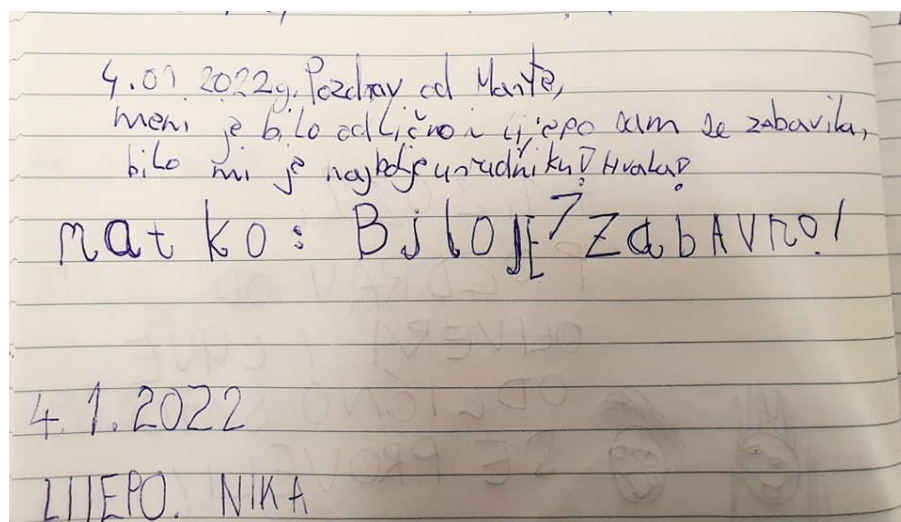 4.01 2022g. Pozdrav od Marte,
meni je bilo odlično i lijepo sam se zabavila,
bilo mi je najbolje u sudniku! Hvala!
matko: BiloJE ZabAVno!
4.1.2022
LIJEPO. NIKA